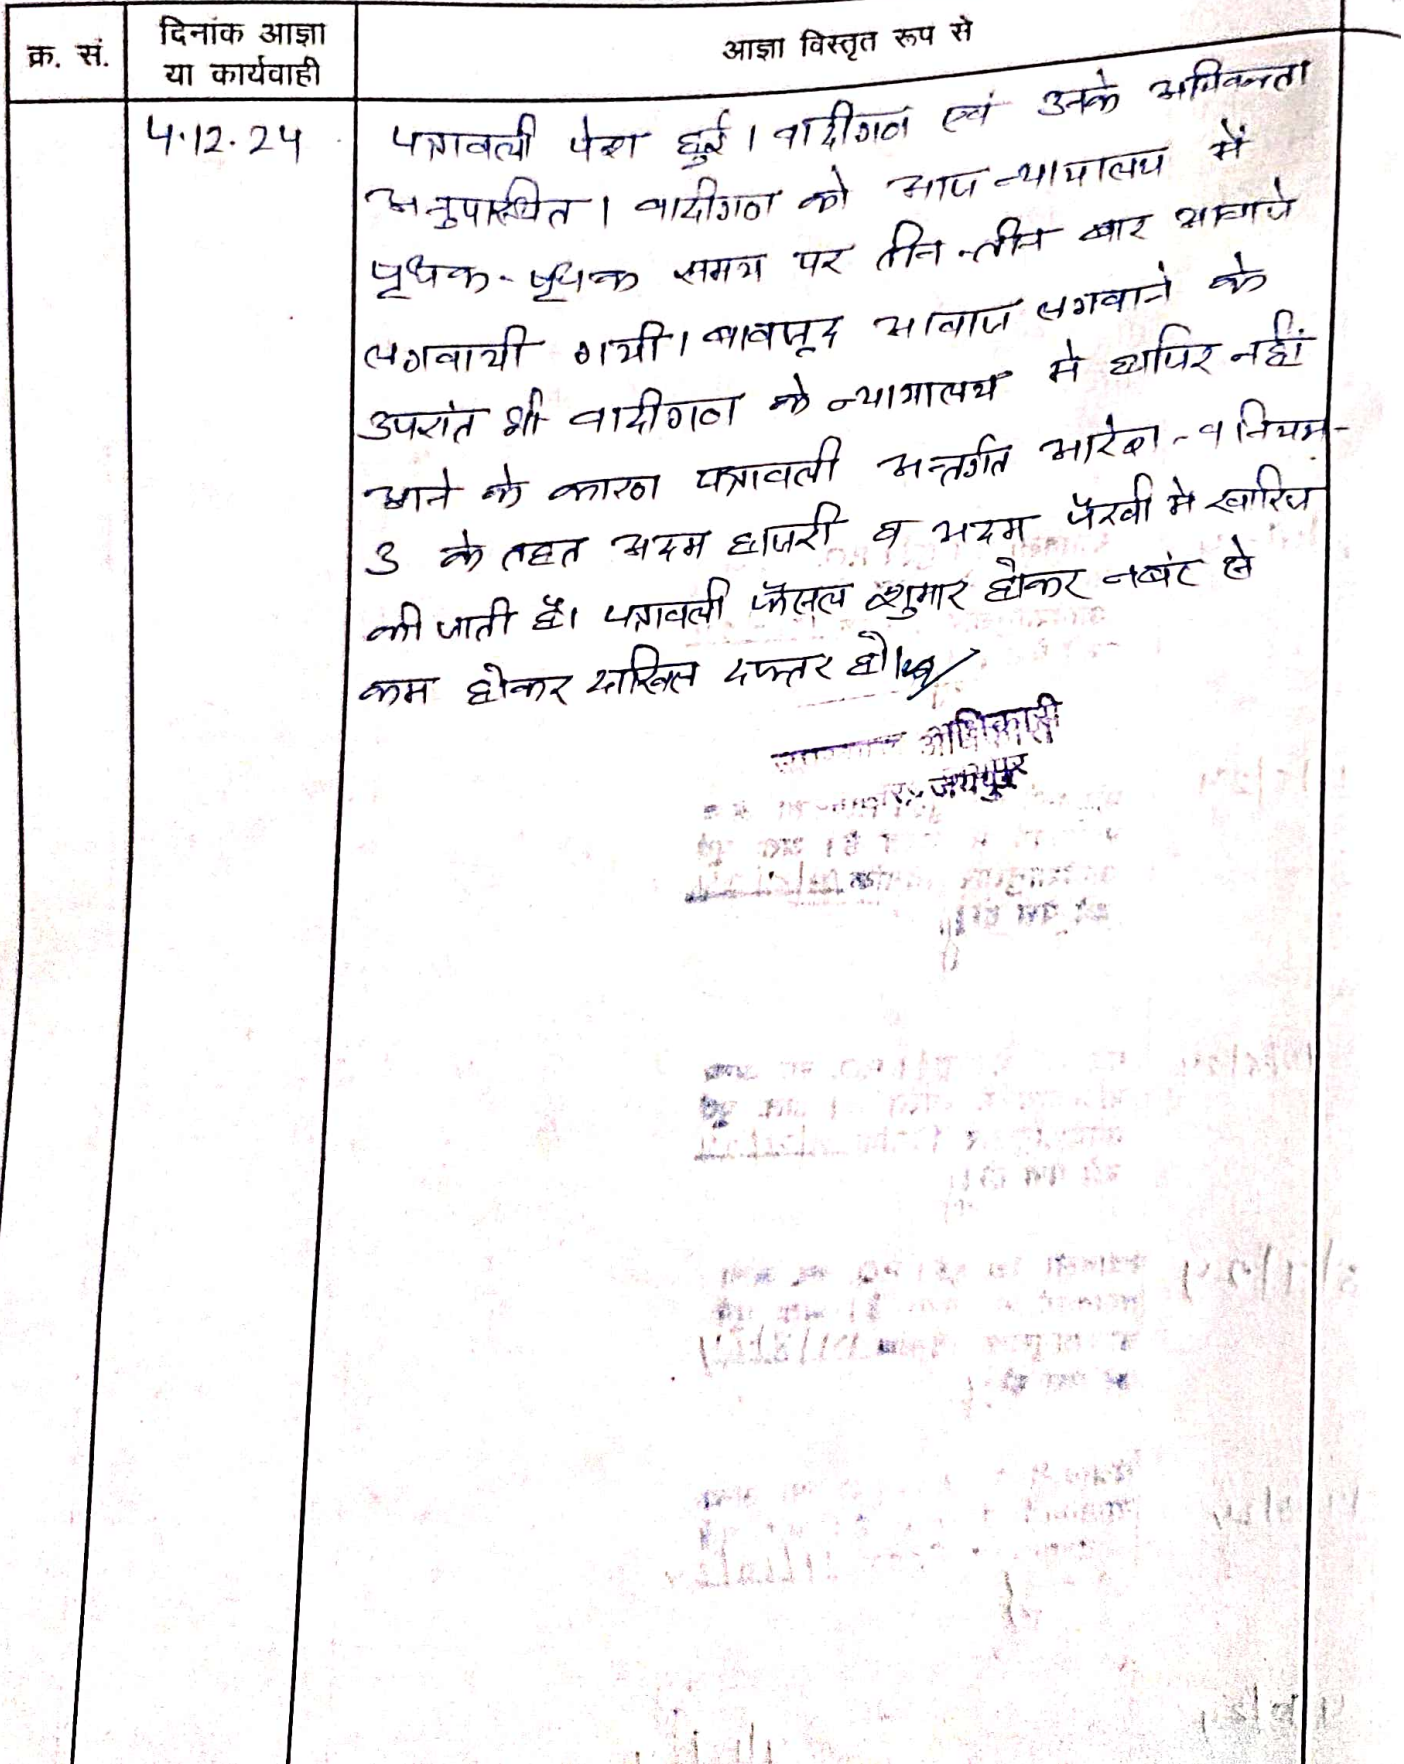 क्र. सं.
दिनांक आज्ञा
या कार्यवाही
आज्ञा विस्तृत रूप से
4.12.24
पत्रावली पेश हुई। वादीगण एवं उनके अभिवक्ता
अनुपस्थित। वादीगण को आज न्यायालय में
पृथक-पृथक समय पर तीन-तीन बार आवाजे
लगवायी गयी। बावजूद आवाज लगवाने के
उपरांत भी वादीगण के न्यायालय मे हाजिर नहीं
आने के कारण पत्रावली अन्तर्गत आदेश-9 नियम-
3 के तहत अदम हाजरी व अदम पैरवी मे खारिज
की जाती है। पत्रावली फैसल शुमार होकर नबंर से
कम होकर दाखिल दफ्तर हो।
अधिकारी
जयपुर